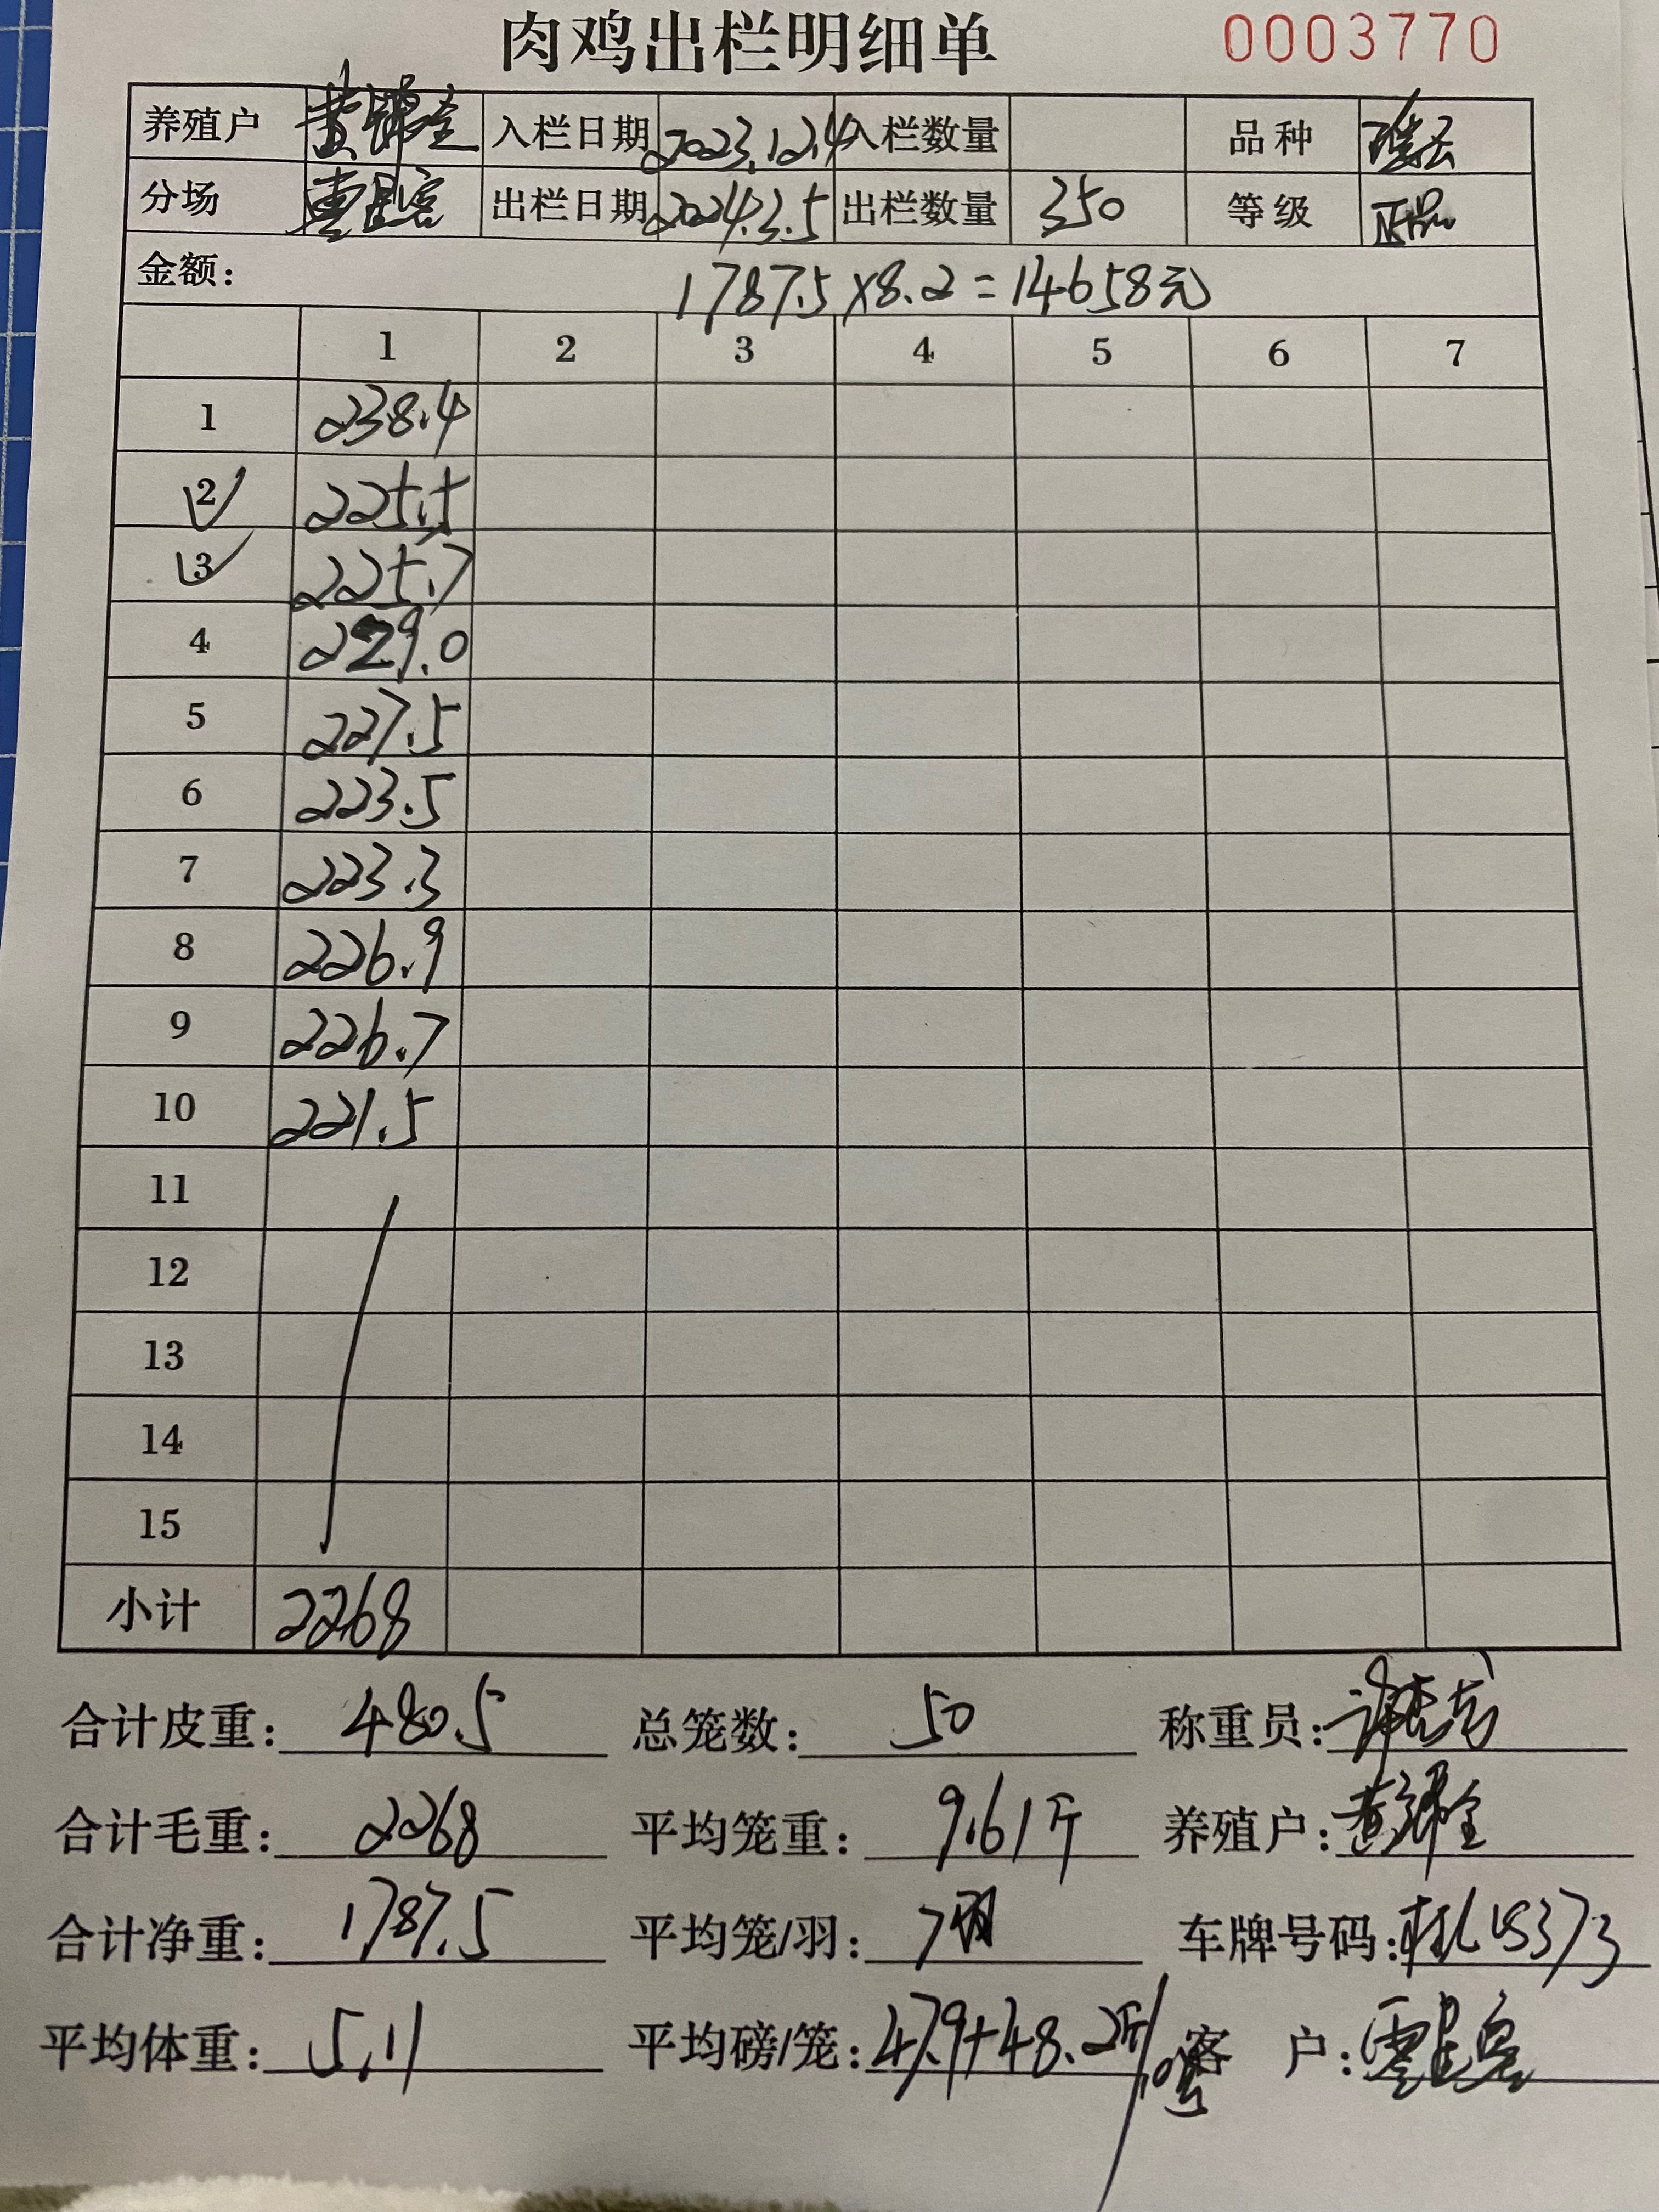 肉鸡出栏明细单 0003770
养殖户 入栏日期 2023.12.4 入栏数量 品种
分场 出栏日期 2024.3.5 出栏数量 350 等级 正品
金额: 1787.5×8.2=14658元
1 2 3 4 5 6 7
1 238.4
2 225.5
3 225.7
4 229.0
5 227.5
6 223.5
7 223.3
8 226.9
9 226.7
10 221.5
11
12
13
14
15
小计 2268
合计皮重: 480.5 总笼数: 50 称重员:
合计毛重: 2268 平均笼重: 9.61斤 养殖户:
合计净重: 1787.5 平均笼/羽: 7羽 车牌号码:
平均体重: 5.11 平均磅/笼: 47.9+48.2斤/ 客户: